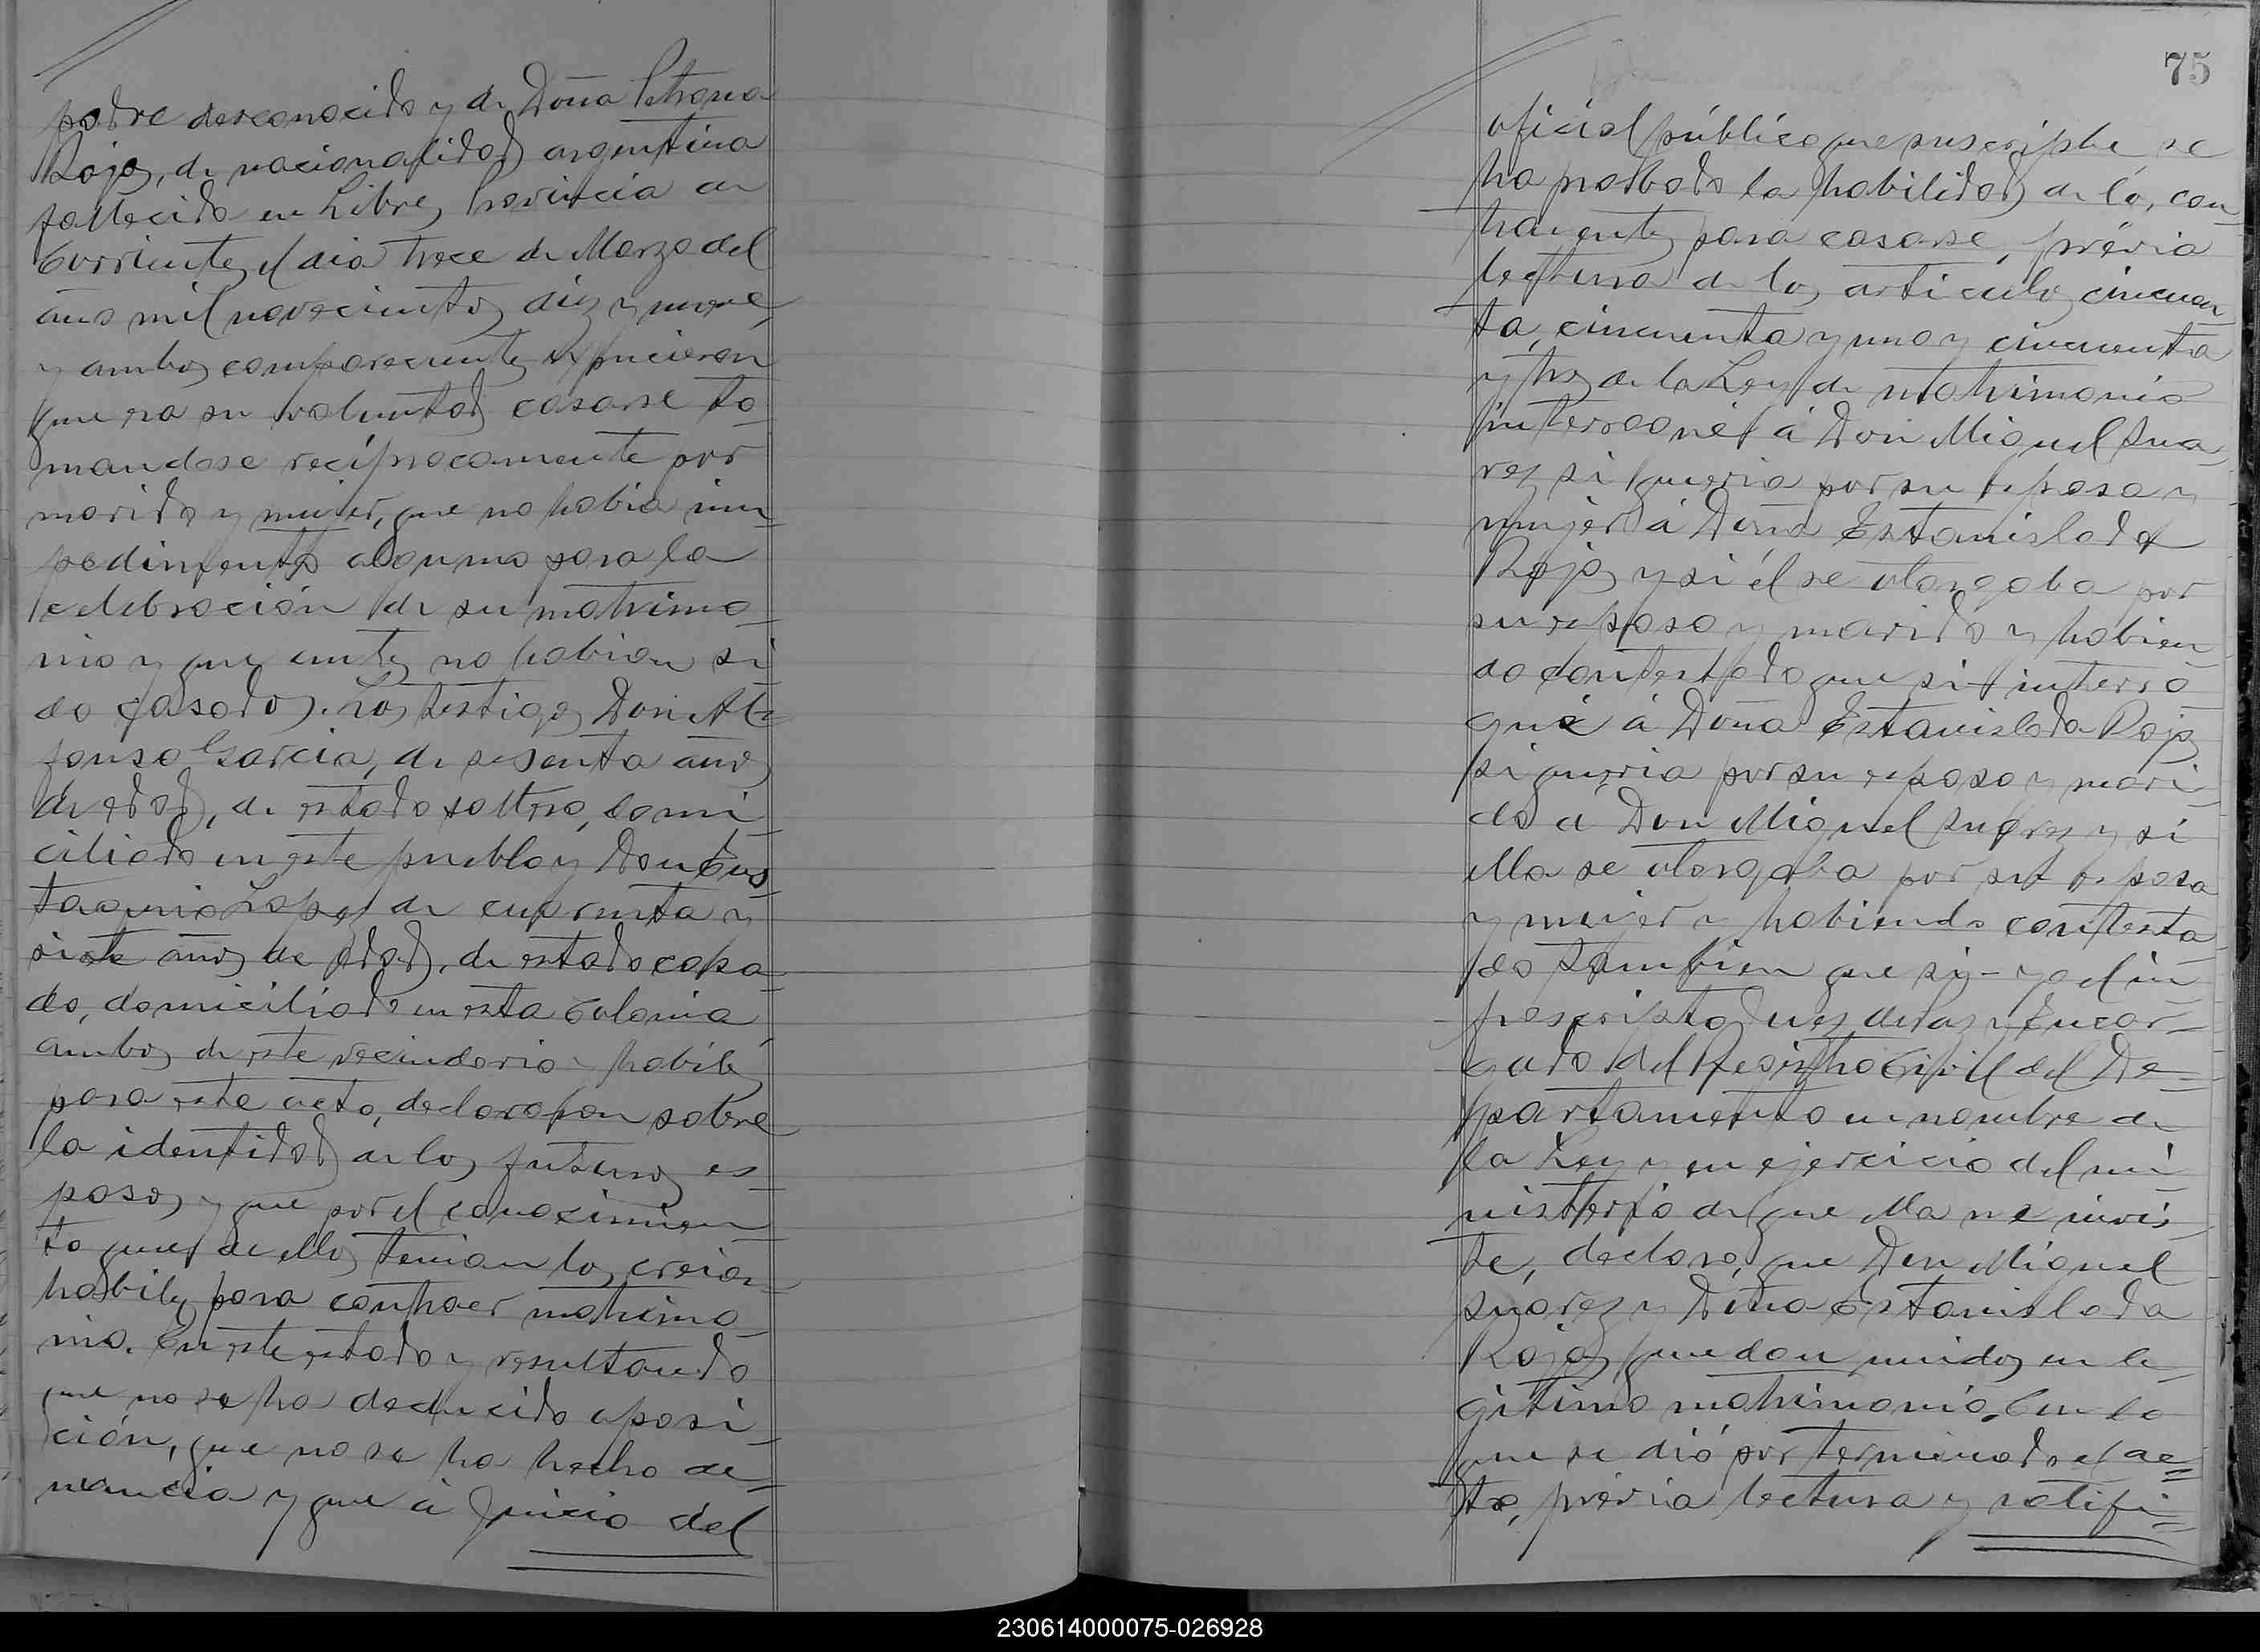 padre desconocido y de Doña Petrona
Rojas, de nacionalidad argentina
fallecida en Libres, Provincia de
Corrientes, el dia trece de Marzo del
año mil novecientos diez y nueve,
y ambos comparecientes expusieron
que era su voluntad casarse to-
mandose recíprocamente por
marido y mujer, que no habia im-
pedimento alguno para la
celebración de su matrimo-
nio y que antes no habian si-
do casados. Los testigos Don Al-
fonso Garcia, de sesenta años
de edad, de estado soltero, domi-
ciliado en este pueblo y Don Eus-
taquio Lopez de cuarenta y
siete años de edad, de estado casa-
do, domiciliado en esta Colonia,
ambos de este vecindario y habiles
para este acto, declararon sobre
la identidad de los futuros es-
posos y que por el conocimien-
to que de ellos tenian los creian
habiles para contraer matrimo-
nio. En este estado y resultando
que no se ha deducido oposi-
ción, que no se ha hecho de-
nuncia y que á juicio del
75
oficial público que suscribe, se
ha probado la habilidad de los con-
trayentes para casarse, prévia
lectura de los articulos cincuen-
ta, cincuenta y uno y cincuenta
y tres de la Ley de matrimonio
interrogué á Don Miguel Sua-
rez si queria por su esposa y
mujer á Doña Estanislada
Rojas y si él se otorgaba por
su esposo y marido y habien-
do contestado que si - interro-
gué á Doña Estanislada Rojas
si queria por su esposo y mari-
do á Don Miguel Suarez y si
ella se otorgaba por su esposa
y mujer y habiendo contesta-
do tambien que si - yo el in-
frascripto Juez de Paz y Encar-
gado del Registro Civil del De-
partamento en nombre de
la Ley y en ejercicio del mi-
nisterio de que ella me invis-
te, declaro, que Don Miguel
Suarez y Doña Estanislada
Rojas quedan unidos en le-
gitimo matrimonio. Con lo
que se dió por terminado el ac-
to, prévia lectura y ratifi-
230614000075-026928